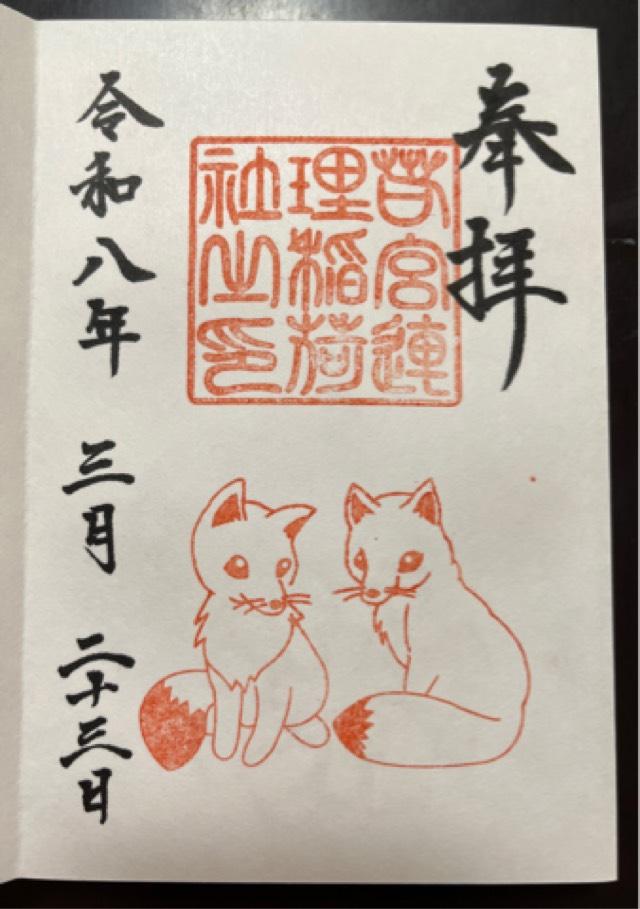 奉拝
若宮連
理稲荷
社之印
令和八年 三月 二十三日